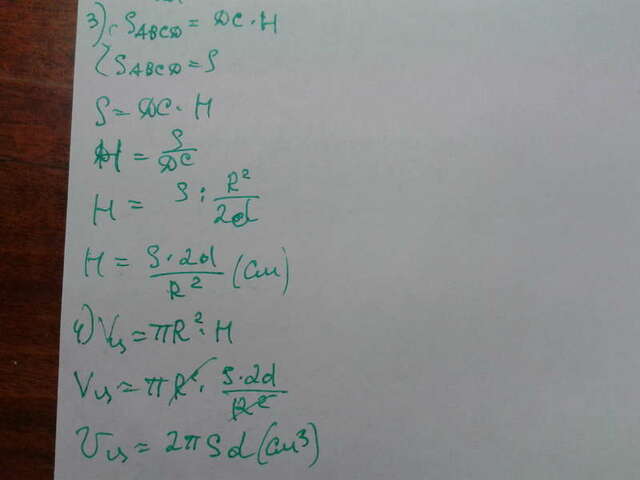 3) { S_ABCD = DC · H
{ S_ABCD = S
S = DC · H
H = S/DC
H = S : R²/2d
H = S · 2d / R² (см)
4) Vц = πR² · H
Vц = πR² · S · 2d / R²
Vц = 2πSd (см³)